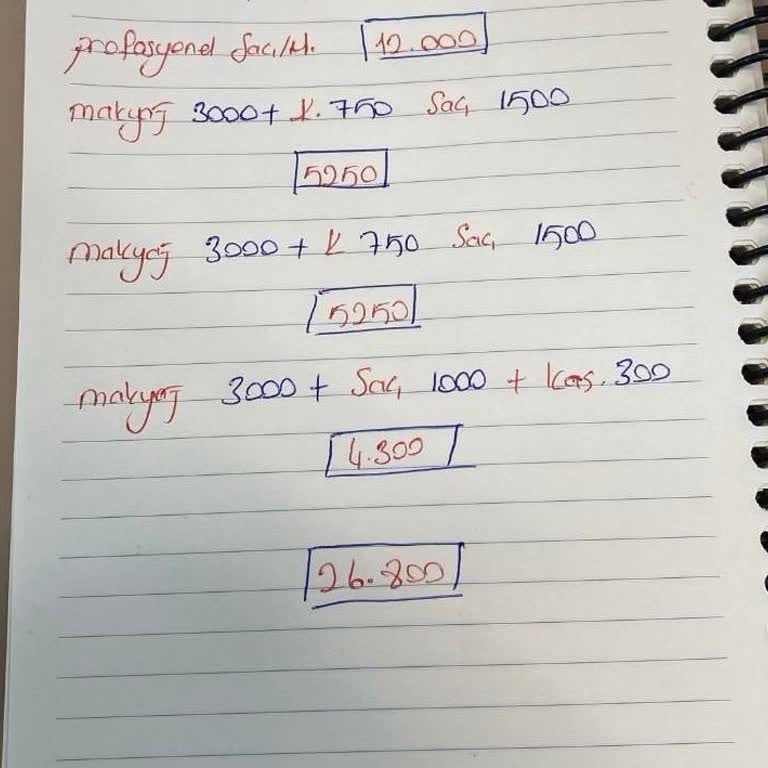 profosyonel Saç/M. 12.000
makyaj 3000 + K. 750 Saç 1500
5250
makyaj 3000 + K 750 Saç 1500
5250
makyaj 3000 + Saç 1000 + Kaş. 300
4.300
26.800